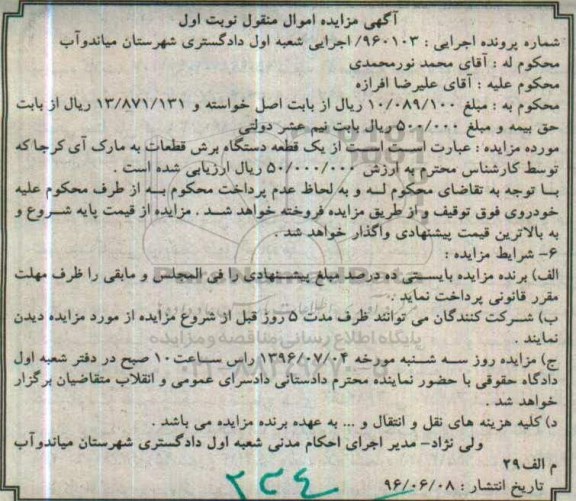 آگهی مزایده اموال منقول نوبت اول
شماره پرونده اجرایی : ۹۶۰۱۰۳/ اجرایی شعبه اول دادگستری شهرستان میاندوآب
محکوم له : آقای محمد نورمحمدی
محکوم علیه : آقای علیرضا افرازه
محکوم به : مبلغ ۱۰/۰۸۹/۱۰۰ ریال از بابت اصل خواسته و ۱۳/۸۷۱/۱۳۱ ریال از بابت
حق بیمه و مبلغ ۵۰۰/۰۰۰ ریال بابت نیم عشر دولتی
مورده مزایده : عبارت است است از یک قطعه دستگاه برش قطعات به مارک آی کرجا که
توسط کارشناس محترم به ارزش ۵۰/۰۰۰/۰۰۰ ریال ارزیابی شده است .
با توجه به تقاضای محکوم له و به لحاظ عدم پرداخت محکوم به از طرف محکوم علیه
خودروی فوق توقیف و از طریق مزایده فروخته خواهد شد . مزایده از قیمت پایه شروع و
به بالاترین قیمت پیشنهادی واگذار خواهد شد .
۶- شرایط مزایده :
الف) برنده مزایده بایستی ده درصد مبلغ پیشنهادی را فی المجلس و مابقی را ظرف مهلت
مقرر قانونی پرداخت نماید .
ب) شرکت کنندگان می توانند ظرف مدت ۵ روز قبل از شروع مزایده از مورد مزایده دیدن
نمایند .
ج) مزایده روز سه شنبه مورخه ۱۳۹۶/۰۷/۰۴ راس ساعت ۱۰ صبح در دفتر شعبه اول
دادگاه حقوقی با حضور نماینده محترم دادستانی دادسرای عمومی و انقلاب متقاضیان برگزار
خواهد شد .
د) کلیه هزینه های نقل و انتقال و ... به عهده برنده مزایده می باشد .
ولی نژاد- مدیر اجرای احکام مدنی شعبه اول دادگستری شهرستان میاندوآب
م الف ۲۹
تاریخ انتشار : ۹۶/۰۶/۰۸
۲۳۴